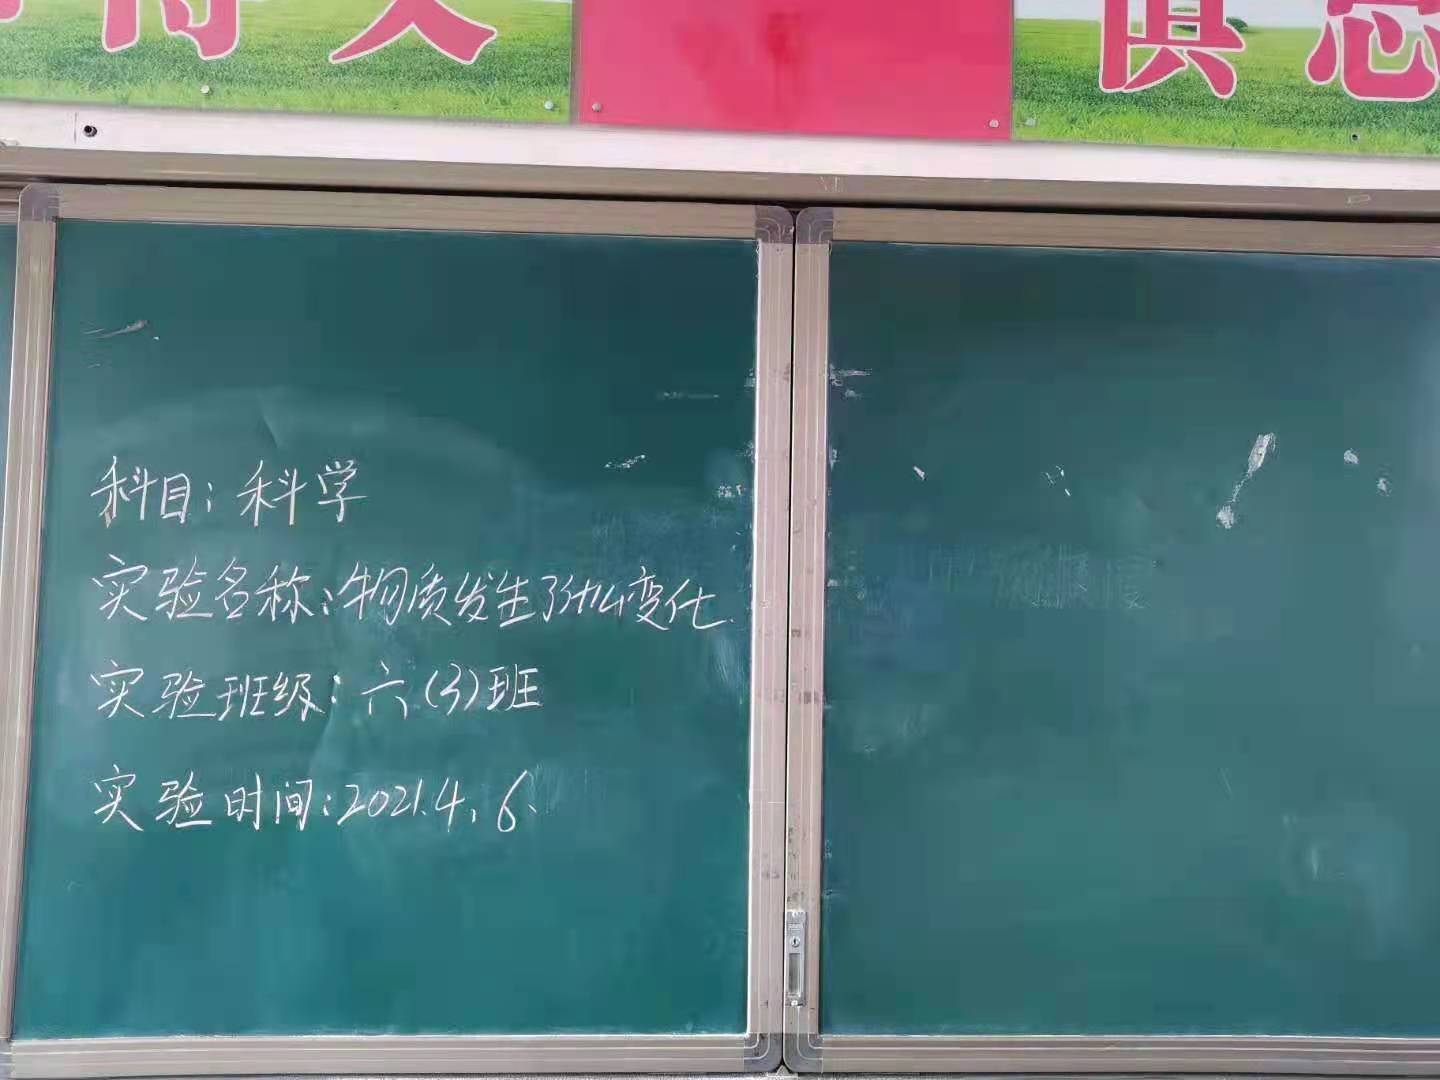 科目：科学
实验名称：物质发生了什么变化.
实验班级：六(3)班
实验时间：2021.4.6.